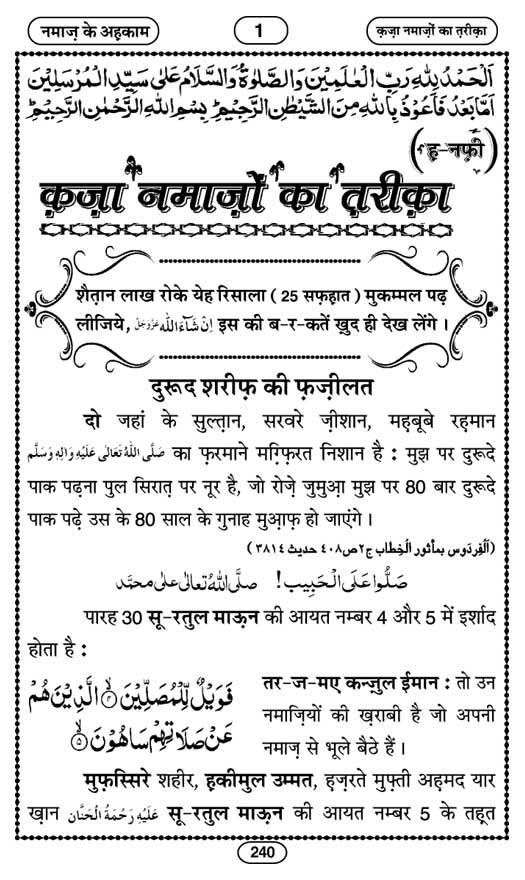 नमाज़ के अहकाम
1
क़ज़ा नमाज़ों का त़रीक़ा
اَلْحَمْدُ لِلّٰهِ رَبِّ الْعٰلَمِيْنَ وَالصَّلٰوةُ وَالسَّلَامُ عَلٰى سَيِّدِ الْمُرْسَلِيْنَ
اَمَّا بَعْدُ فَاَعُوْذُ بِاللّٰهِ مِنَ الشَّيْطٰنِ الرَّجِيْمِ ؕ بِسْمِ اللّٰهِ الرَّحْمٰنِ الرَّحِيْمِ ؕ
(ह़-नफ़ी)
क़ज़ा नमाज़ों का त़रीक़ा
शैत़ान लाख रोके येह रिसाला ( 25 सफ़ह़ात ) मुकम्मल पढ़
लीजिये, اِنْ شَآءَ اللّٰه عَزَّوَجَلَّ इस की ब-र-कतें ख़ुद ही देख लेंगे ।
दुरूद शरीफ़ की फ़ज़ीलत
दो जहां के सुल्त़ान, सरवरे ज़ीशान, मह़बूबे रह़मान
صَلَّى اللهُ تَعَالٰى عَلَيْهِ وَاٰلِهٖ وَسَلَّم का फ़रमाने मग़्फ़िरत निशान है : मुझ पर दुरूदे
पाक पढ़ना पुल सिरात़ पर नूर है, जो रोज़े जुमुआ़ मुझ पर 80 बार दुरूदे
पाक पढ़े उस के 80 साल के गुनाह मुआ़फ़ हो जाएंगे ।
(اَلْفِردَوس بمأثور الْخِطاب ج٢ص٤٠٨ حديث ٣٨١٤)
صَلُّوا عَلَى الْحَبِيب! صلَّى اللهُ تعالٰى علٰى محمَّد
पारह 30 सू-रतुल माऊ़न की आयत नम्बर 4 और 5 में इर्शाद
होता है :
فَوَيْلٌ لِّلْمُصَلِّيْنَ ۙ﴿۴﴾ الَّذِيْنَ هُمْ
عَنْ صَلَاتِهِمْ سَاهُوْنَ ۙ﴿۵﴾
तर-ज-मए कन्ज़ुल ईमान : तो उन
नमाज़ियों की ख़राबी है जो अपनी
नमाज़ से भूले बैठे हैं ।
मुफ़स्सिरे शहीर, ह़कीमुल उम्मत, ह़ज़रते मुफ़्ती अह़मद यार
ख़ान عَلَيْهِ رَحْمَةُ الْحَنَّان सू-रतुल माऊ़न की आयत नम्बर 5 के तह़्त
240